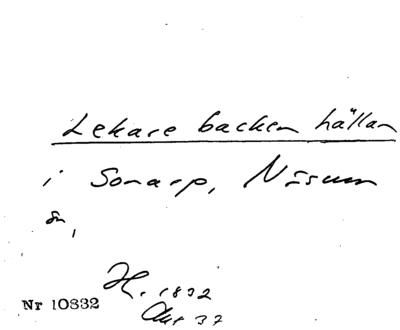 Lekare backen hällan
i Sonarp, Näsum
sn,
H. 1832
Akt 37
Nr 10832